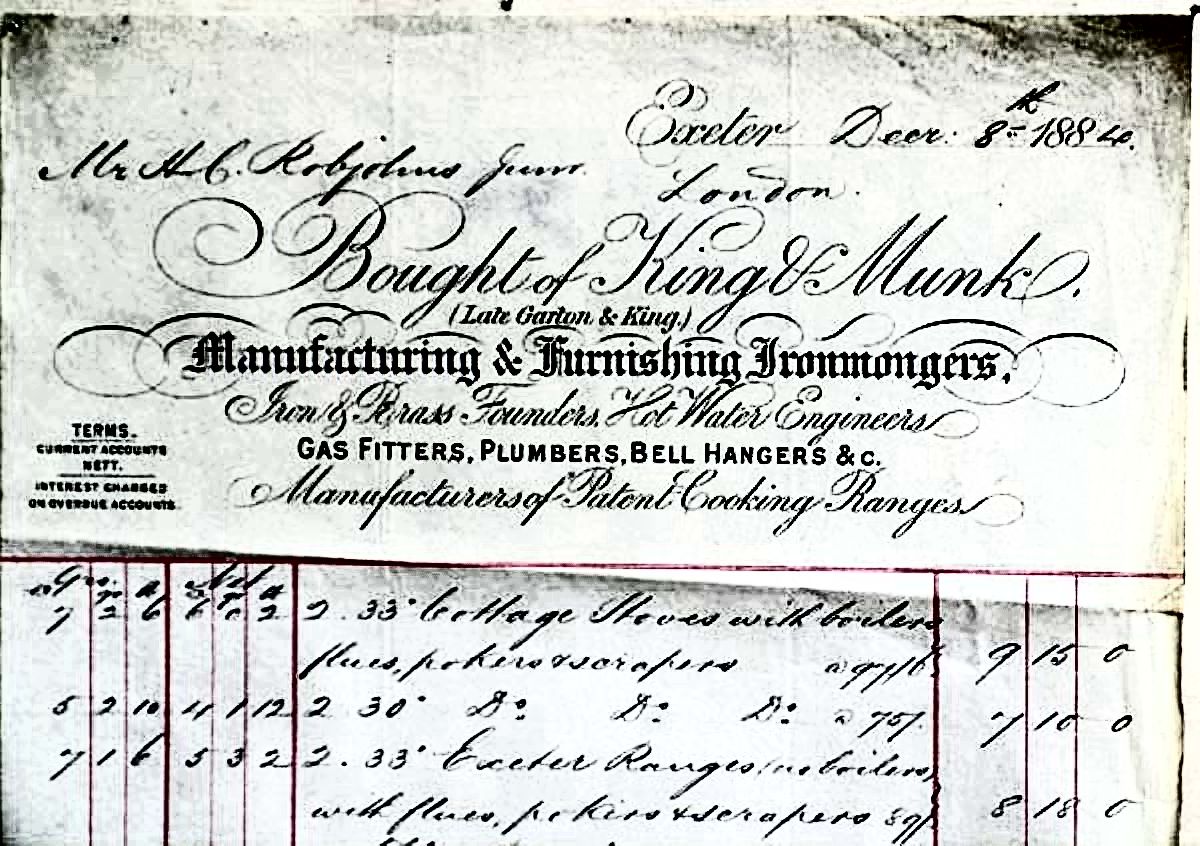 Exeter Decr: 8th 1884.
Mr H. C. Robjohns Junr.
London.
Bought of King & Munk.
(Late Garton & King.)
Manufacturing & Furnishing Ironmongers,
Iron & Brass Founders, Hot Water Engineers
GAS FITTERS, PLUMBERS, BELL HANGERS &c.
Manufacturers of Patent Cooking Ranges
TERMS.
CURRENT ACCOUNTS
NETT.
INTEREST CHARGED
ON OVERDUE ACCOUNTS.
7 2 6 6 0 2 2 . 33" Cottage Stoves with boilers
flues, pokers & scrapers @ 97/6 9 15 0
5 2 10 4 1 12 2 30" Do. Do. Do. @ 75/. 7 10 0
7 1 6 5 3 2 2 . 33" Exeter Ranges (no boilers)
with flues, pokers & scrapers 89/. 8 18 0